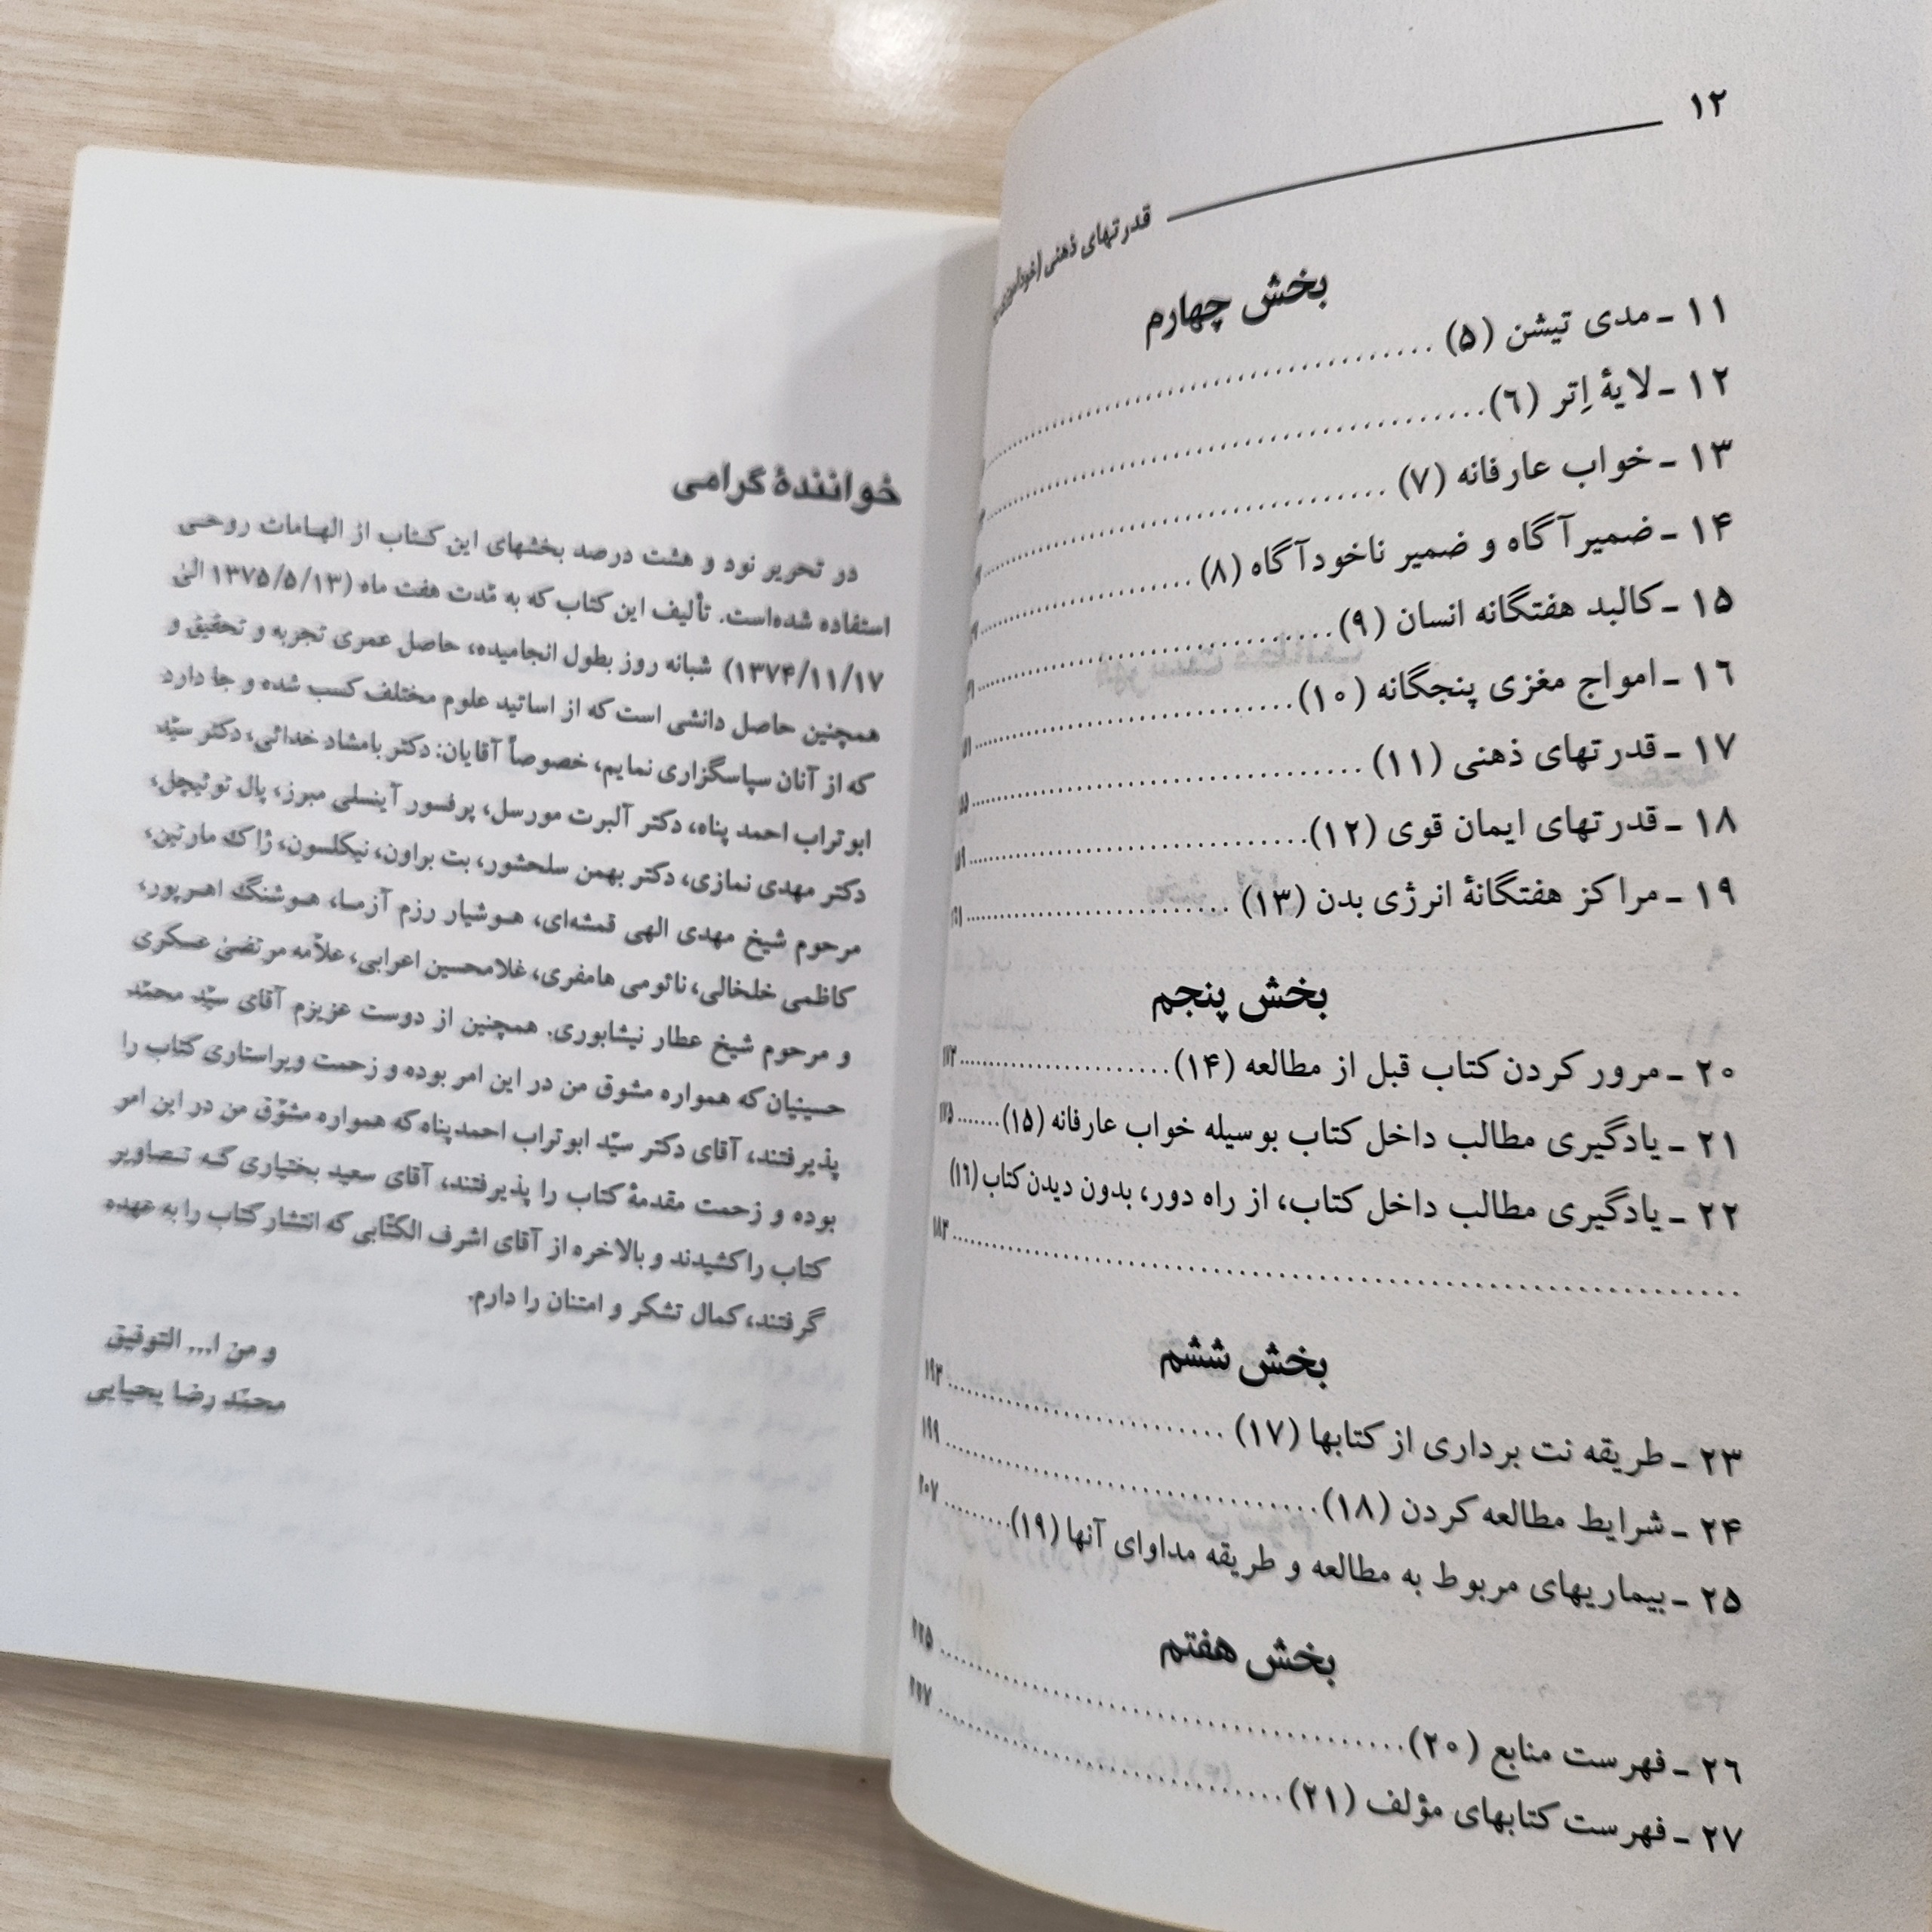 ۱۲
قدرتهای ذهنی
بخش چهارم
۱۱ ـ مدی تیشن (۵)
۱۲ ـ لایهٔ اِتر (٦)
۱۳ ـ خواب عارفانه (۷)
۱۴ ـ ضمیرآگاه و ضمیر ناخودآگاه (۸)
۱۵ ـ کالبد هفتگانه انسان (۹)
۱٦ ـ امواج مغزی پنجگانه (۱۰)
۱۷ ـ قدرتهای ذهنی (۱۱)
۱۸ ـ قدرتهای ایمان قوی (۱۲)
۱۹ ـ مراکز هفتگانهٔ انرژی بدن (۱۳)
بخش پنجم
۲۰ ـ مرور کردن کتاب قبل از مطالعه (۱۴) ۱۷۳
۲۱ ـ یادگیری مطالب داخل کتاب بوسیله خواب عارفانه (۱۵) ۱۷۵
۲۲ ـ یادگیری مطالب داخل کتاب، از راه دور، بدون دیدن کتاب (۱٦)
۱۸۳
بخش ششم
۲۳ ـ طریقه نت برداری از کتابها (۱۷) ۱۹۳
۲۴ ـ شرایط مطالعه کردن (۱۸) ۱۹۹
۲۵ ـ بیماریهای مربوط به مطالعه و طریقه مداوای آنها (۱۹) ۲۰۷
بخش هفتم
۲٦ ـ فهرست منابع (۲۰) ۲۲۵
۲۷ ـ فهرست کتابهای مؤلف (۲۱) ۲۲۷
خوانندهٔ گرامی
در تحریر نود و هشت درصد بخشهای این کتاب از الهامات روحی
استفاده شده‌است. تألیف این کتاب که به مّدت هفت ماه (۱۳۷۵/۵/۱۳ الی
۱۳۷۴/۱۱/۱۷) شبانه روز بطول انجامیده، حاصل عمری تجربه و تحقیق و
همچنین حاصل دانشی است که از اساتید علوم مختلف کسب شده و جا دارد
که از آنان سپاسگزاری نمایم، خصوصاً آقایان: دکتر بامشاد خدائی، دکتر سیّد
ابوتراب احمد پناه، دکتر آلبرت مورسل، پرفسور آینسلی میرز، پال توئیچل،
دکتر مهدی نمازی، دکتر بهمن سلحشور، بت براون، نیکلسون، ژاک مارتین،
مرحوم شیخ مهدی الهی قمشه‌ای، هوشیار رزم آزما، هوشنگ اهرپور،
کاظمی خلخالی، نائومی هامفری، غلامحسین اعرابی، علاّمه مرتضی عسکری
و مرحوم شیخ عطار نیشابوری. همچنین از دوست عزیزم آقای سیّد محمّد
حسینیان که همواره مشوق من در این امر بوده و زحمت ویراستاری کتاب را
پذیرفتند، آقای دکتر سیّد ابوتراب احمدپناه که همواره مشوّق من در این امر
بوده و زحمت مقدمهٔ کتاب را پذیرفتند، آقای سعید بختیاری که تصاویر
کتاب را کشیدند و بالاخره از آقای اشرف الکتّابی که انتشار کتاب را به عهده
گرفتند، کمال تشکر و امتنان را دارم.
و من ا... التوفیق
محمّد رضا یحیایی